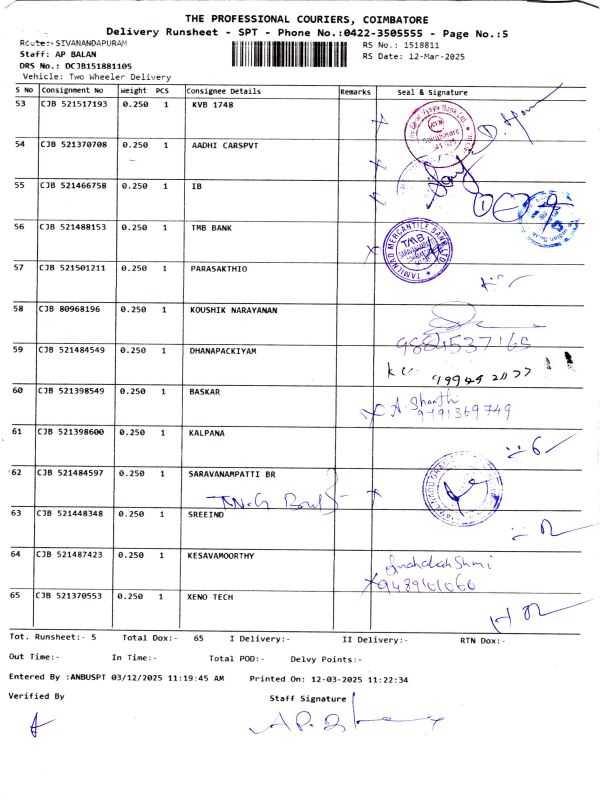 THE PROFESSIONAL COURIERS, COIMBATORE
Delivery Runsheet - SPT - Phone No.:0422-3505555 - Page No.:5
Route:- SIVANANDAPURAM
RS No.: 1518811
Staff: AP BALAN
RS Date: 12-Mar-2025
DRS No.: DCJB151881105
Vehicle: Two Wheeler Delivery
S No Consignment No Weight PCS Consignee Details Remarks Seal & Signature
53 CJB 521517193 0.250 1 KVB 1748
54 CJB 521370708 0.250 1 AADHI CARSPVT
55 CJB 521466758 0.250 1 IB
56 CJB 521488153 0.250 1 TMB BANK
TAMILNAD MERCANTILE BANK LTD.
TMB
57 CJB 521501211 0.250 1 PARASAKTHIO
58 CJB 80968196 0.250 1 KOUSHIK NARAYANAN
9884537165
59 CJB 521484549 0.250 1 DHANAPACKIYAM
60 CJB 521398549 0.250 1 BASKAR
A. Shanthi
9791369749
61 CJB 521398600 0.250 1 KALPANA
62 CJB 521484597 0.250 1 SARAVANAMPATTI BR
TN.G Bank
63 CJB 521448348 0.250 1 SREEIND
64 CJB 521487423 0.250 1 KESAVAMOORTHY
65 CJB 521370553 0.250 1 XENO TECH
Tot. Runsheet:- 5 Total Dox:- 65 I Delivery:- II Delivery:- RTN Dox:-
Out Time:- In Time:- Total POD:- Delvy Points:-
Entered By :ANBUSPT 03/12/2025 11:19:45 AM Printed On: 12-03-2025 11:22:34
Verified By Staff Signature